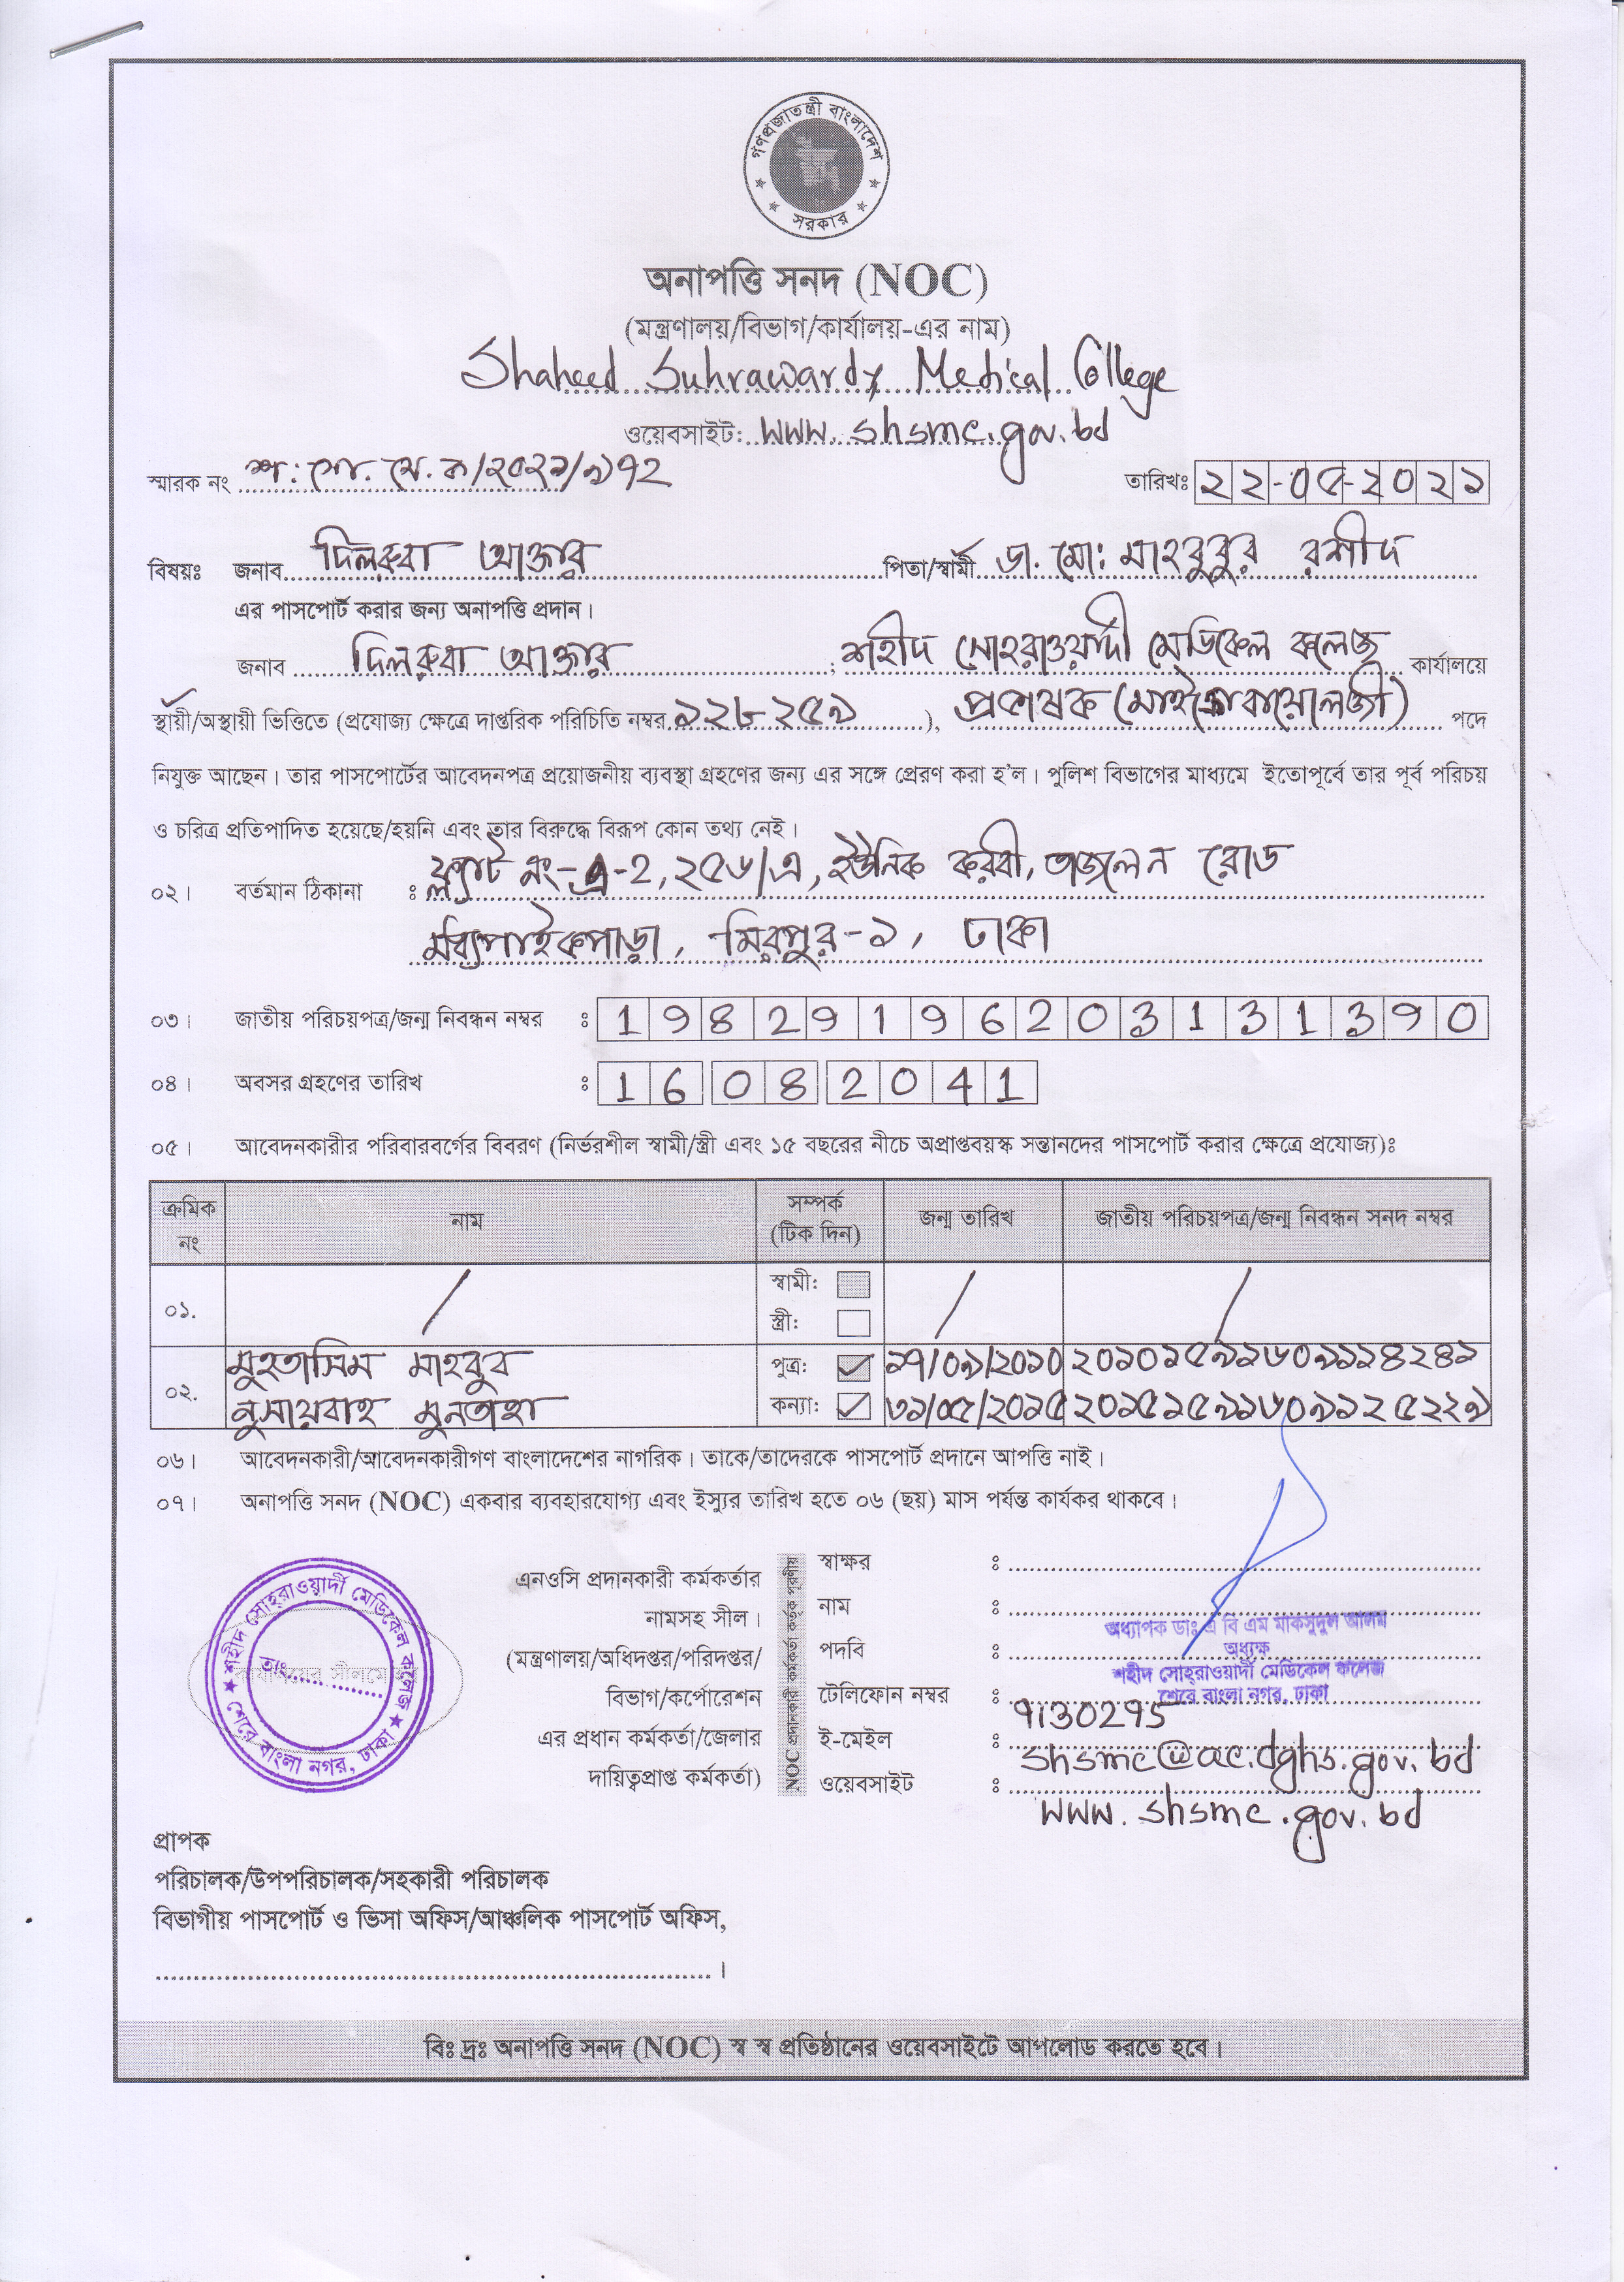 গণপ্রজাতন্ত্রী বাংলাদেশ
সরকার
অনাপত্তি সনদ (NOC)
(মন্ত্রণালয়/বিভাগ/কার্যালয়-এর নাম)
Shaheed Suhrawardy Medical College
ওয়েবসাইট: www.shsmc.gov.bd
স্মারক নং শ: সো. মে. ক/২০২১/৯৭২ তারিখঃ ২২-০৫-২০২১
বিষয়ঃ জনাব দিলরুবা আক্তার পিতা/স্বামী ডা. মো: মাহবুবুর রশীদ
এর পাসপোর্ট করার জন্য অনাপত্তি প্রদান।
জনাব দিলরুবা আক্তার, শহীদ সোহরাওয়ার্দী মেডিকেল কলেজ কার্যালয়ে
স্থায়ী/অস্থায়ী ভিত্তিতে (প্রযোজ্য ক্ষেত্রে দাপ্তরিক পরিচিতি নম্বর ১২৮২৫৯), প্রভাষক (মাইক্রোবায়োলজী) পদে
নিযুক্ত আছেন। তার পাসপোর্টের আবেদনপত্র প্রয়োজনীয় ব্যবস্থা গ্রহণের জন্য এর সঙ্গে প্রেরণ করা হ'ল। পুলিশ বিভাগের মাধ্যমে ইতোপূর্বে তার পূর্ব পরিচয়
ও চরিত্র প্রতিপাদিত হয়েছে/হয়নি এবং তার বিরুদ্ধে বিরূপ কোন তথ্য নেই।
০২। বর্তমান ঠিকানা : ফ্ল্যাট নং-এ-২, ২৫৬/এ, ইউনিক করবী, রোড
মধ্যপাইকপাড়া, মিরপুর-১, ঢাকা
০৩। জাতীয় পরিচয়পত্র/জন্ম নিবন্ধন নম্বর : 19829196203131390
০৪। অবসর গ্রহণের তারিখ : 16 08 2041
০৫। আবেদনকারীর পরিবারবর্গের বিবরণ (নির্ভরশীল স্বামী/স্ত্রী এবং ১৫ বছরের নীচে অপ্রাপ্তবয়স্ক সন্তানদের পাসপোর্ট করার ক্ষেত্রে প্রযোজ্য)ঃ
ক্রমিক নং নাম সম্পর্ক (টিক দিন) জন্ম তারিখ জাতীয় পরিচয়পত্র/জন্ম নিবন্ধন সনদ নম্বর
০১. / স্বামী: / /
স্ত্রী:
০২. মুহতাসিম মাহবুব পুত্র: ✓ ১৭/০৯/২০১০ ২০১০১৫৯১৬০৯১১৪২৪১
নুসায়বাহ মুনতাহা কন্যা: ✓ ৩১/০৫/২০১৫ ২০১৫১৫৯১৬০৯১২৫২২৯
০৬। আবেদনকারী/আবেদনকারীগণ বাংলাদেশের নাগরিক। তাকে/তাদেরকে পাসপোর্ট প্রদানে আপত্তি নাই।
০৭। অনাপত্তি সনদ (NOC) একবার ব্যবহারযোগ্য এবং ইস্যুর তারিখ হতে ০৬ (ছয়) মাস পর্যন্ত কার্যকর থাকবে।
শহীদ সোহ্‌রাওয়ার্দী মেডিকেল কলেজ
তাং
শেরে বাংলা নগর, ঢাকা
এনওসি প্রদানকারী কর্মকর্তার
নামসহ সীল।
(মন্ত্রণালয়/অধিদপ্তর/পরিদপ্তর/
বিভাগ/কর্পোরেশন
এর প্রধান কর্মকর্তা/জেলার
দায়িত্বপ্রাপ্ত কর্মকর্তা)
NOC প্রদানকারী কর্মকর্তা কর্তৃক পূরণীয়
স্বাক্ষর :
নাম :
পদবি :
অধ্যাপক ডাঃ এ বি এম মাকসুদুল আলম
অধ্যক্ষ
শহীদ সোহ্‌রাওয়ার্দী মেডিকেল কলেজ
শেরে বাংলা নগর, ঢাকা
টেলিফোন নম্বর : 9130295
ই-মেইল : shsmc@ac.dghs.gov.bd
ওয়েবসাইট : www.shsmc.gov.bd
প্রাপক
পরিচালক/উপপরিচালক/সহকারী পরিচালক
বিভাগীয় পাসপোর্ট ও ভিসা অফিস/আঞ্চলিক পাসপোর্ট অফিস,
।
বিঃ দ্রঃ অনাপত্তি সনদ (NOC) স্ব স্ব প্রতিষ্ঠানের ওয়েবসাইটে আপলোড করতে হবে।